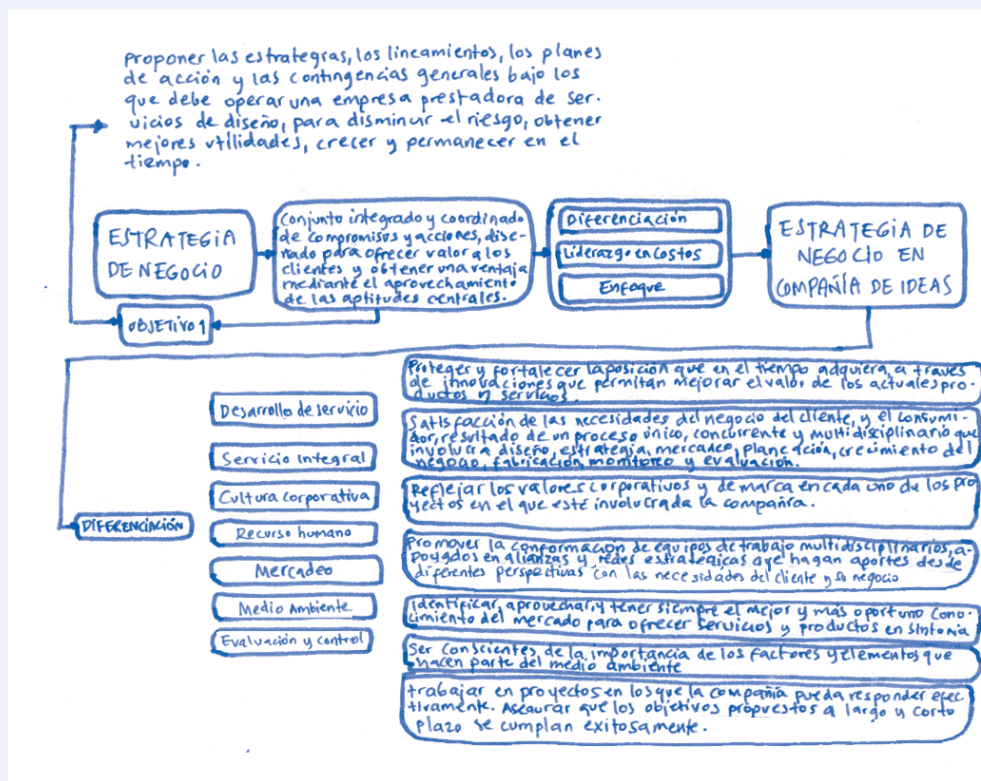 Proponer las estrategras, los lineamientos, los planes
de acción y las contingencias generales bajo los
que debe operar una empresa prestadora de ser-
vicios de diseño, para disminuir el riesgo, obtener
mejores utilidades, crecer y permanecer en el
tiempo.
ESTRATEGIA
DE NEGOCIO
Conjunto integrado y coordinado
de compromisos y acciones, dise-
ñado para ofrecer valor a los
clientes y obtener una ventaja
mediante el aprovechamiento
de las aptitudes centrales.
Diferenciación
Liderazgo en costos
Enfoque
ESTRATEGIA DE
NEGOCIO EN
COMPAÑÍA DE IDEAS
OBJETIVO 1
DIFERENCIACIÓN
Desarrollo de servicio
Servicio Integral
Cultura corporativa
Recurso humano
Mercadeo
Medio Ambiente
Evaluación y control
Proteger y fortalecer la posición que en el tiempo adquiera, a través
de innovaciones que permitan mejorar el valor de los actuales pro-
ductos y servicios.
Satisfacción de las necesidades del negocio del cliente, y el consumi-
dor, resultado de un proceso único, concurrente y multidisciplinario que
involucra diseño, estrategia, mercadeo, planeación, crecimiento del
negocio, fabricación, monitoreo y evaluación.
Reflejar los valores corporativos y de marca en cada uno de los pro
yectos en el que esté involucrada la compañía.
Promover la conformación de equipos de trabajo multidisciplinarios, a-
poyados en alianzas y redes estratégicas que hagan aportes desde
diferentes perspectivas con las necesidades del cliente y su negocio
Identificar, aprovechar, y tener siempre el mejor y más oportuno cono-
cimiento del mercado para ofrecer servicios y productos en sintonía
Ser conscientes de la importancia de los factores y elementos que
hacen parte del medio ambiente
trabajar en proyectos en los que la compañía pueda responder efec-
tivamente. Asegurar que los objetivos propuestos a largo y corto
plazo se cumplan exitosamente.